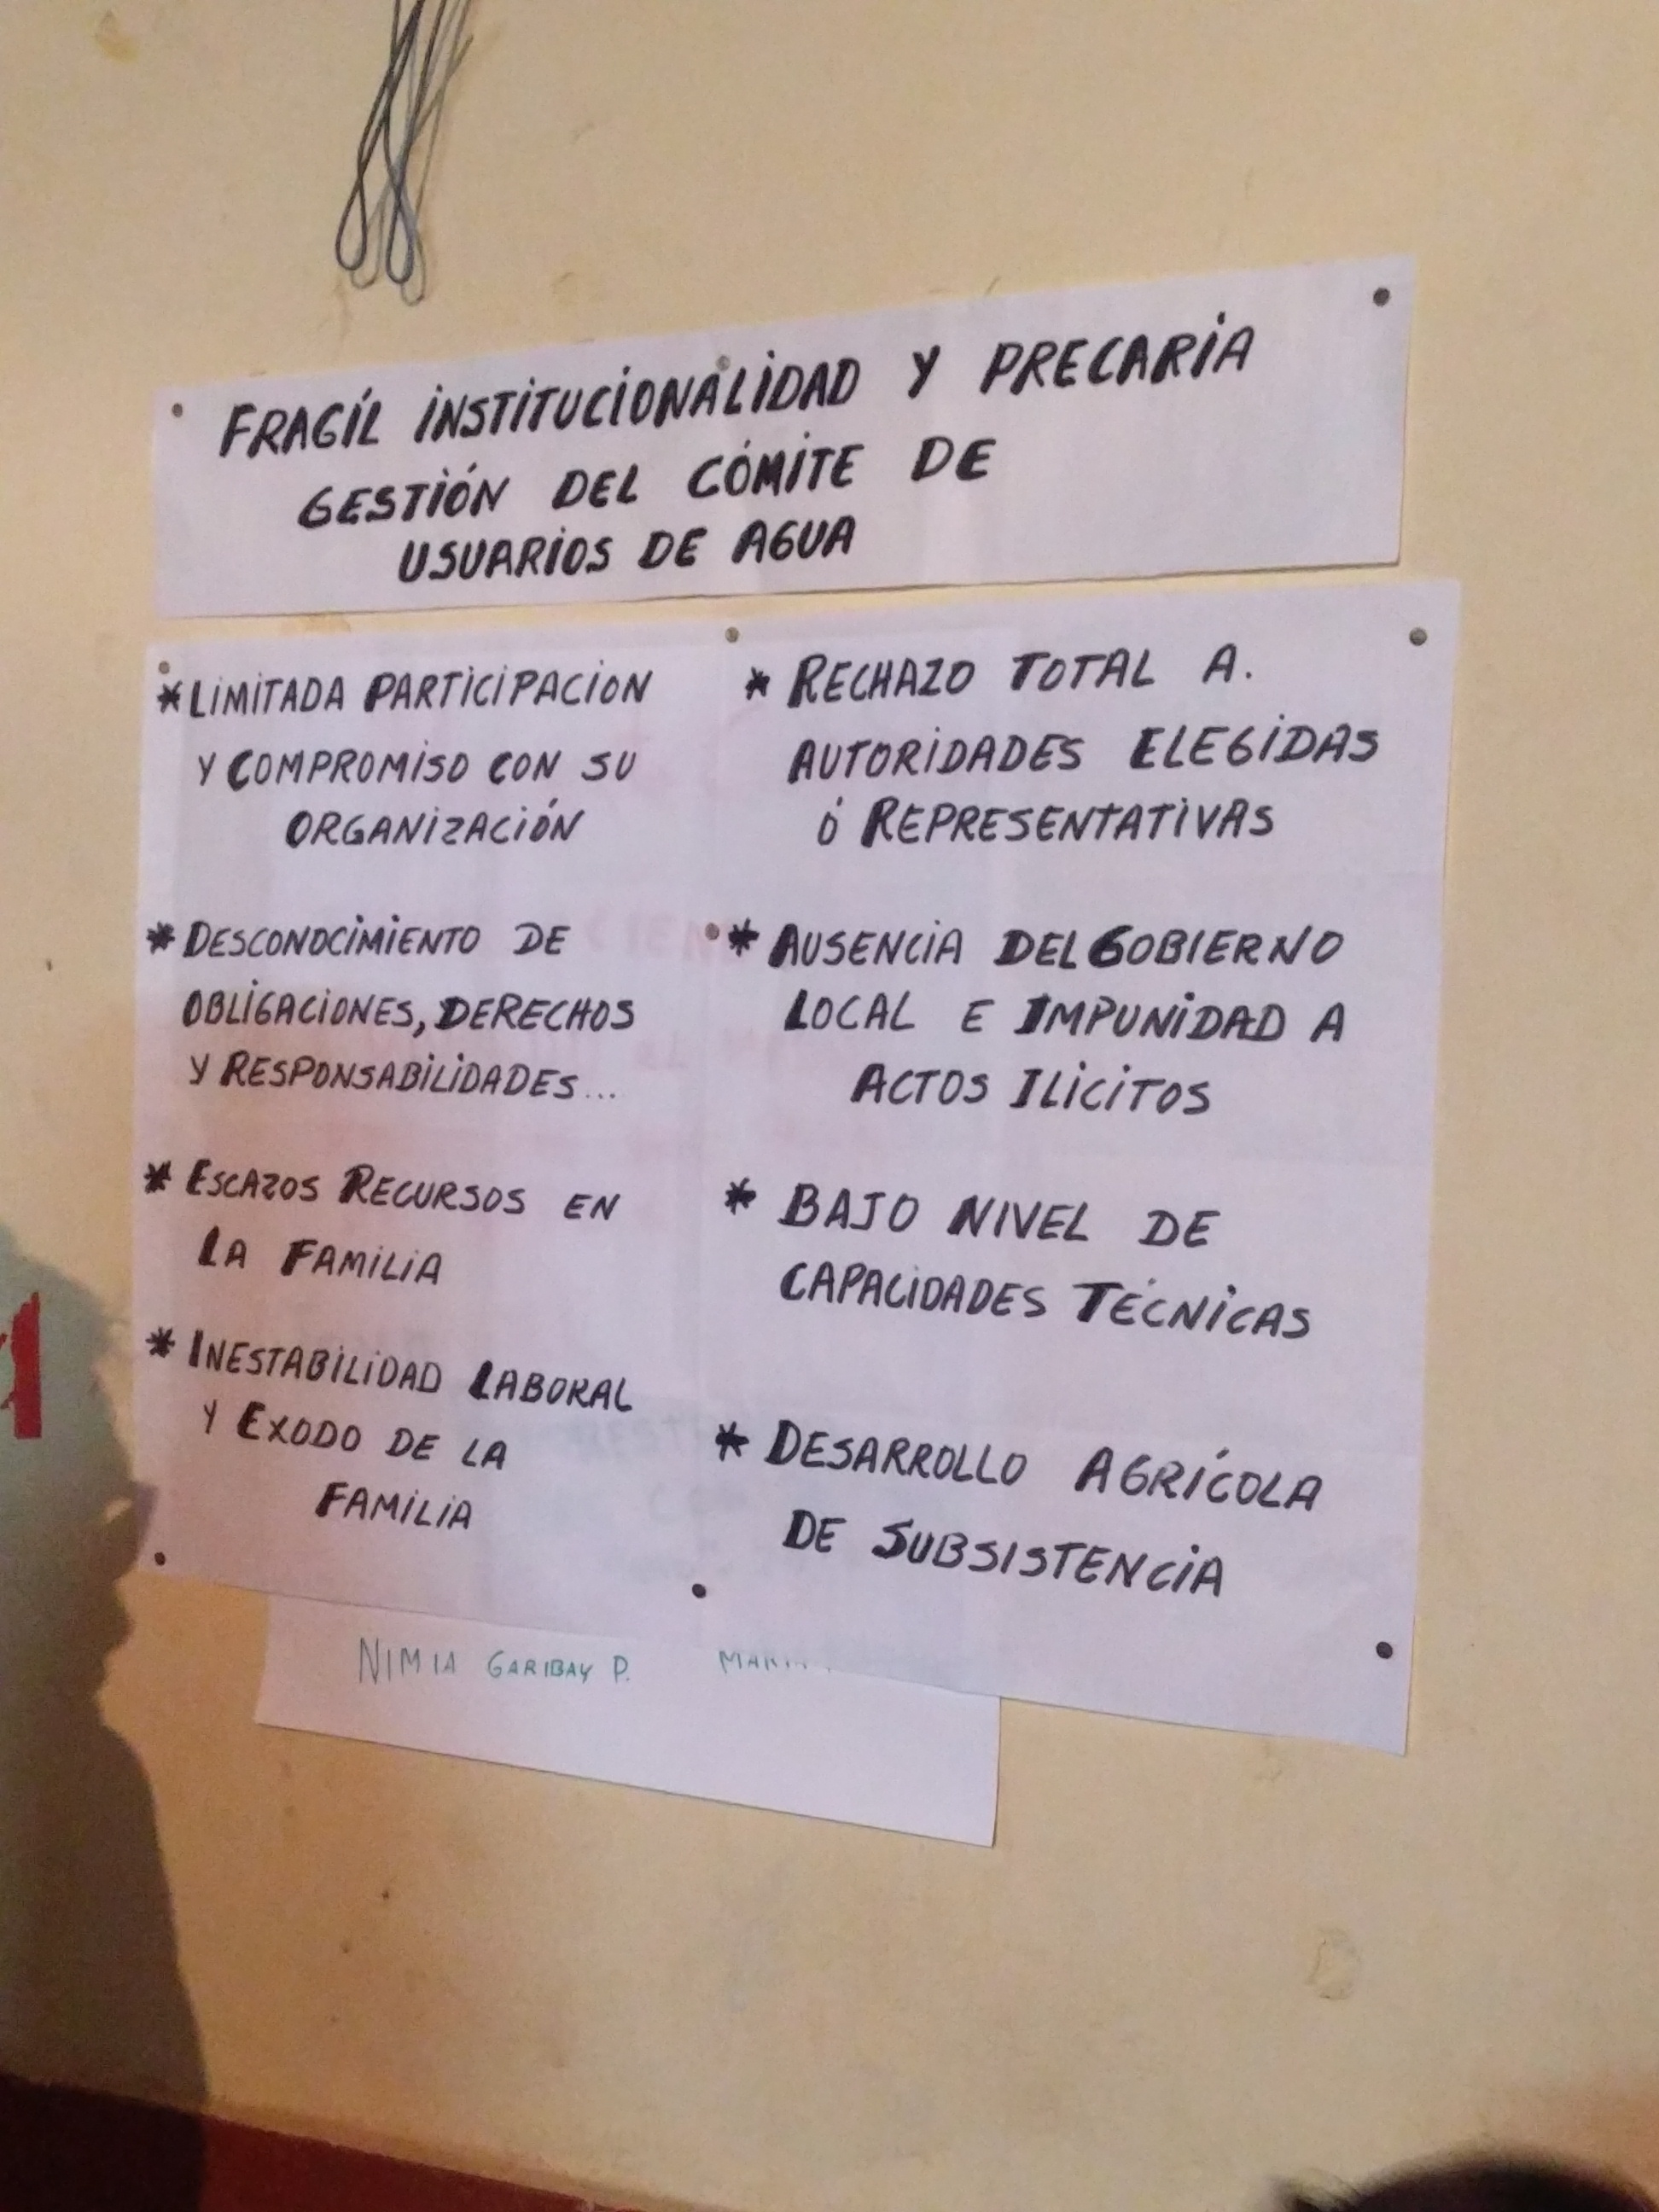 FRAGÍL INSTITUCIONALIDAD Y PRECARIA
GESTIÓN DEL CÓMITE DE
USUARIOS DE AGUA
* LIMITADA PARTICIPACION
Y COMPROMISO CON SU
ORGANIZACIÓN
* DESCONOCIMIENTO DE
OBLIGACIONES, DERECHOS
Y RESPONSABILIDADES...
* ESCAZOS RECURSOS EN
LA FAMILIA
* INESTABILIDAD LABORAL
Y EXODO DE LA
FAMILIA
* RECHAZO TOTAL A.
AUTORIDADES ELEGIDAS
Ó REPRESENTATIVAS
* AUSENCIA DEL GOBIERNO
LOCAL E IMPUNIDAD A
ACTOS ILICITOS
* BAJO NIVEL DE
CAPACIDADES TÉCNICAS
* DESARROLLO AGRÍCOLA
DE SUBSISTENCIA
NIMIA GARIBAY P.